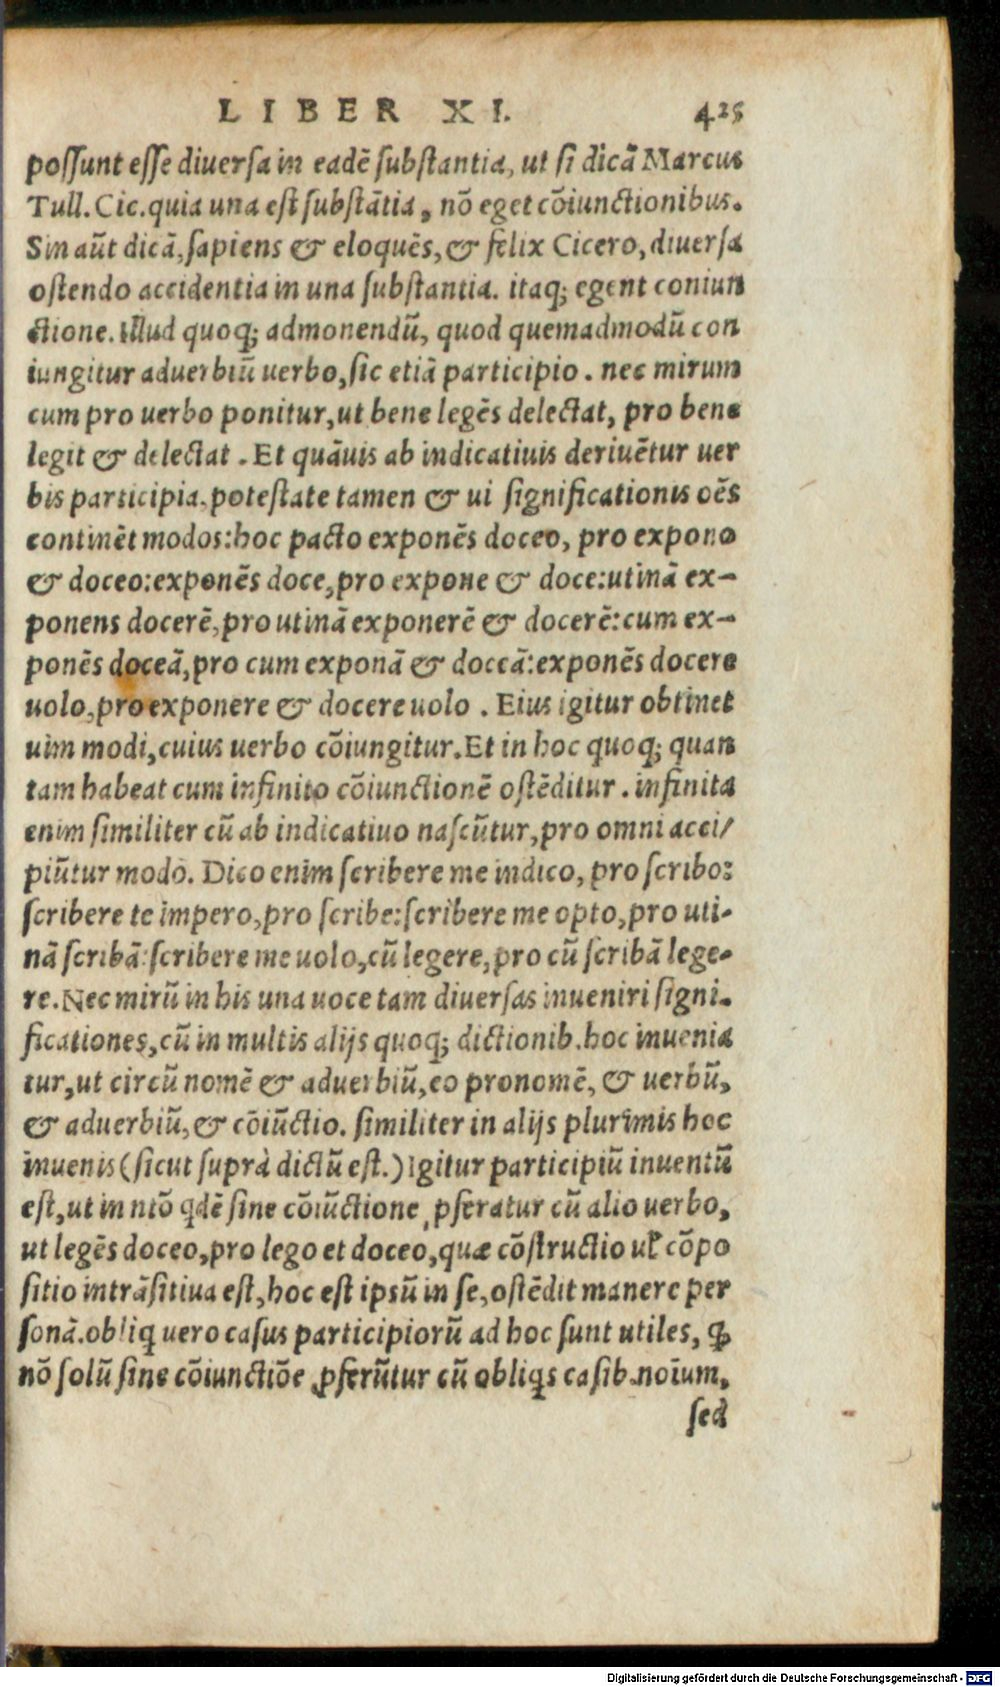 LIBER XI. 425
possunt esse diuersa in eadē substantia, ut si dicā Marcus
Tull. Cic. quia una est substātia, nō eget cōiunctionibus.
Sin aūt dicā, sapiens & eloquēs, & felix Cicero, diuersa
ostendo accidentia in una substantia. itaq; egent coniun
ctione. Illud quoq; admonendū, quod quemadmodū con
iungitur aduerbiū uerbo, sic etiā participio. nec mirum
cum pro uerbo ponitur, ut bene legēs delectat, pro bene
legit & delectat. Et quāuis ab indicatiuis deriuētur uer
bis participia, potestate tamen & ui significationis oēs
continēt modos: hoc pacto exponēs doceo, pro expono
& doceo: exponēs doce, pro expone & doce: utinā ex-
ponens docerē, pro utinā exponerē & docerē: cum ex-
ponēs doceā, pro cum exponā & doceā: exponēs docere
uolo, pro exponere & docere uolo. Eius igitur obtinet
uim modi, cuius uerbo cōiungitur. Et in hoc quoq; quan
tam habeat cum infinito cōiunctionē ostēditur. infinita
enim similiter cū ab indicatiuo nascūtur, pro omni acci/
piūtur modo. Dico enim scribere me indico, pro scribo:
scribere te impero, pro scribe: scribere me opto, pro uti-
nā scribā: scribere me uolo, cū legere, pro cū scribā lege-
re. Nec mirū in his una uoce tam diuersas inueniri signi-
ficationes, cū in multis alijs quoq; dictionib. hoc inuenia
tur, ut circū nomē & aduerbiū, eo pronomē, & uerbū,
& aduerbiū, & cōiūctio. similiter in alijs plurimis hoc
inuenis (sicut suprà dictū est.) Igitur participiū inuentū
est, ut in ntō qdē sine cōiūctione ꝓferatur cū alio uerbo,
ut legēs doceo, pro lego et doceo, quæ cōstructio uł cōpo
sitio intrāsitiua est, hoc est ipsū in se, ostēdit manere per
sonā. obliq uero casus participiorū ad hoc sunt utiles, ꝙ
nō solū sine cōiunctiōe ꝓferūtur cū obliqs casib. noīum,
sed
Digitalisierung gefördert durch die Deutsche Forschungsgemeinschaft - DFG